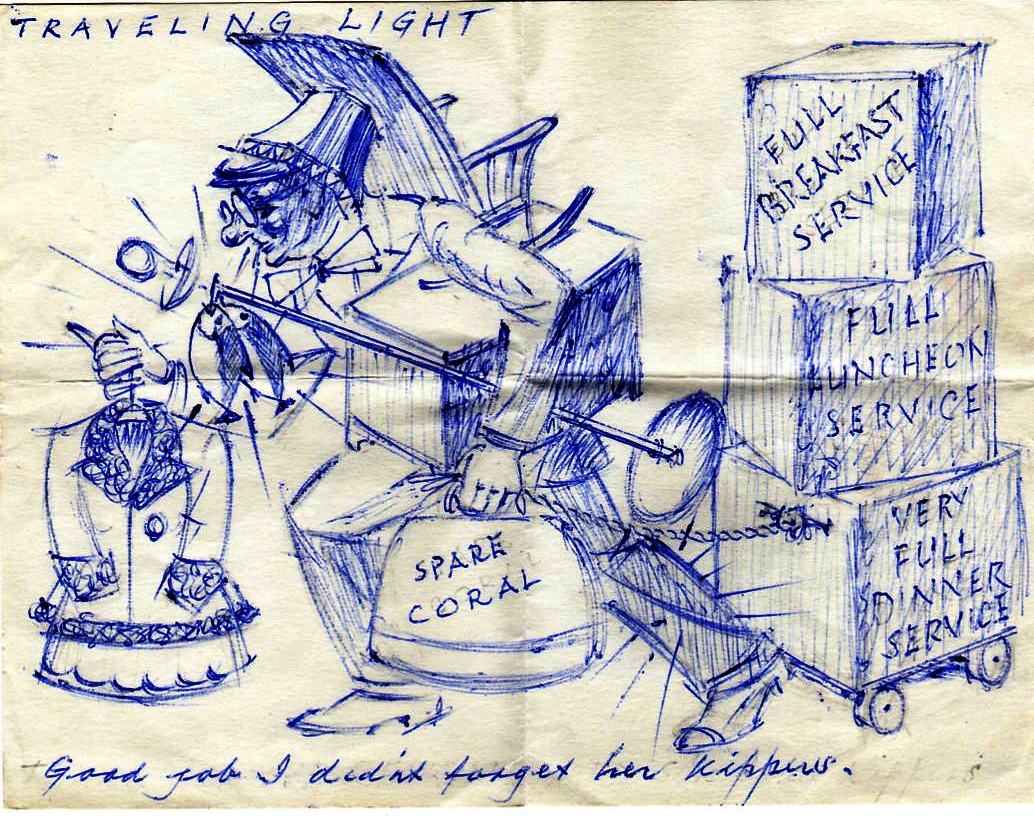 TRAVELING LIGHT
FULL
BREAKFAST
SERVICE
FULL
LUNCHEON
SERVICE
VERY
FULL
DINNER
SERVICE
SPARE
CORAL
Good job I didn't forget her kippers.